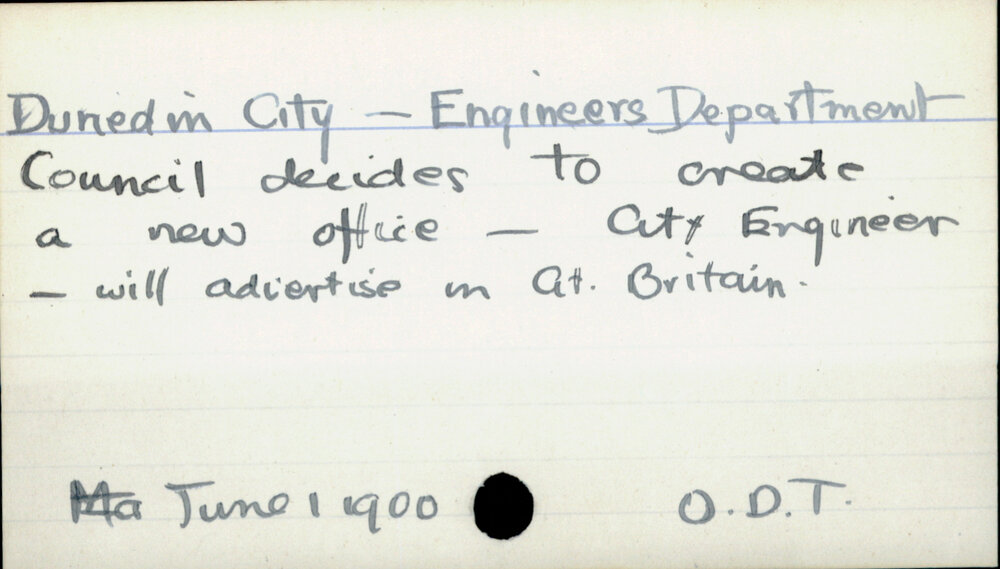 Dunedin City — Engineers Department
Council decides to create
a new office — City Engineer
— will advertise in Gt. Britain.
Ma June 1 1900 O.D.T.